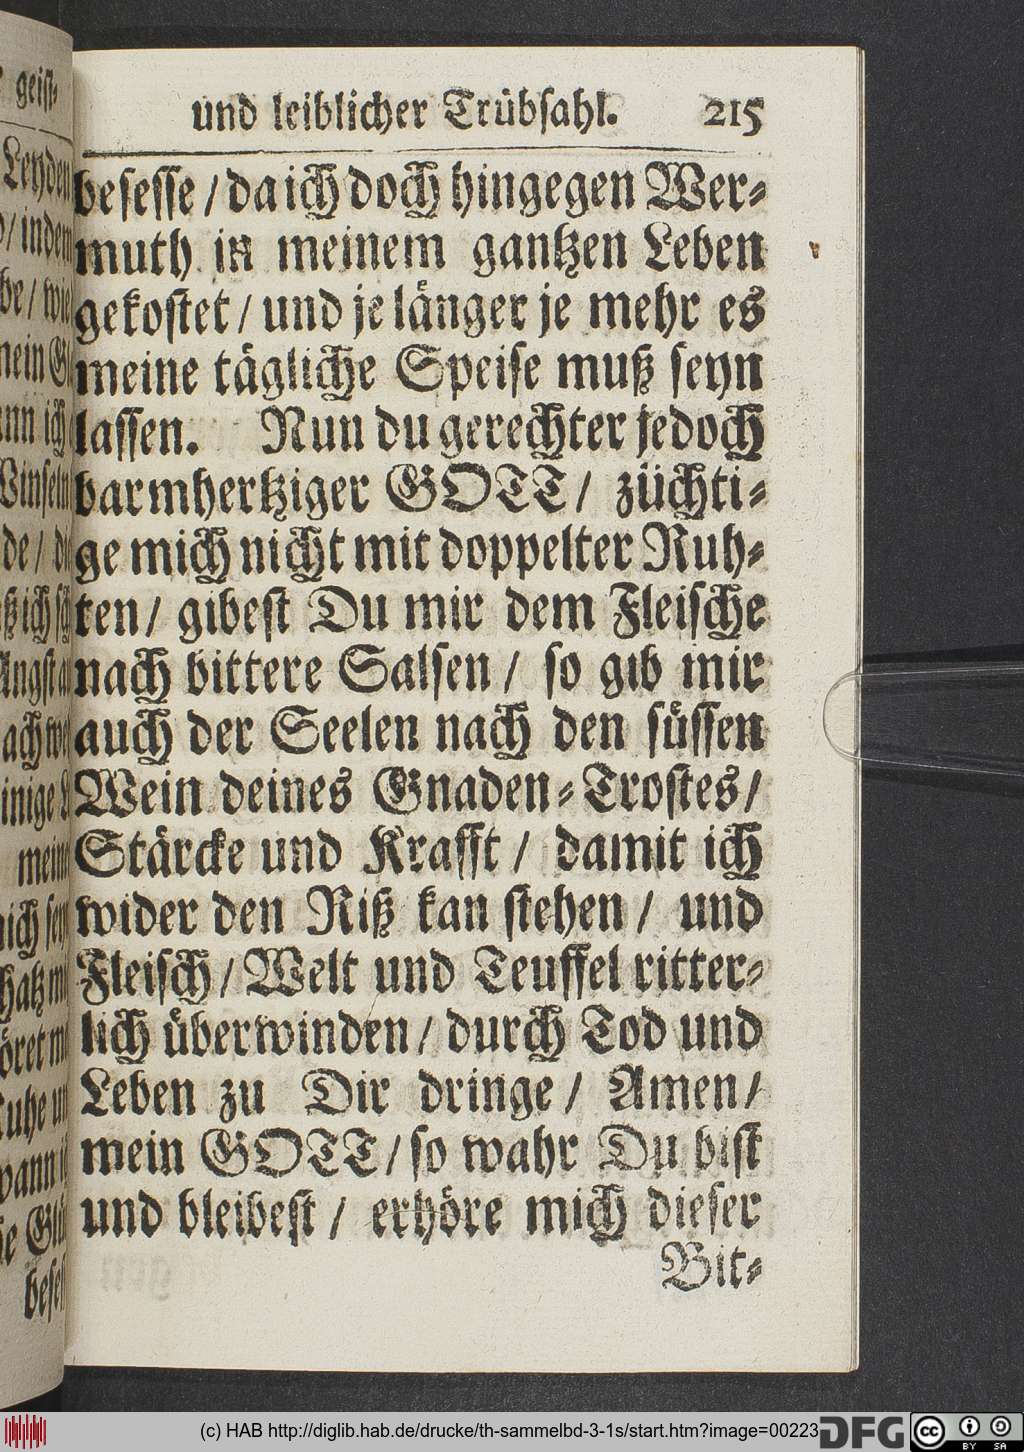 und leiblicher Trübsahl. 215
besesse / da ich doch hingegen Wer-
muth in meinem gantzen Leben
gekostet / und je länger je mehr es
meine tägliche Speise muß seyn
lassen. Nun du gerechter jedoch
barmhertziger GOTT / züchti-
ge mich nicht mit doppelter Ruh-
ten / gibest Du mir dem Fleische
nach bittere Salsen / so gib mir
auch der Seelen nach den süssen
Wein deines Gnaden-Trostes /
Stärcke und Krafft / damit ich
wider den Riß kan stehen / und
Fleisch / Welt und Teuffel ritter-
lich überwinden / durch Tod und
Leben zu Dir dringe / Amen /
mein GOTT / so wahr Du bist
und bleibest / erhöre mich dieser
Bit-
geist-
Leyden
/ indem
be / wie
mein
ich
Winseln
de /
ich
Angst
ach
inige
mein
öret
Ruhe
wann
(c) HAB http://diglib.hab.de/drucke/th-sammelbd-3-1s/start.htm?image=00223
DFG
cc BY SA